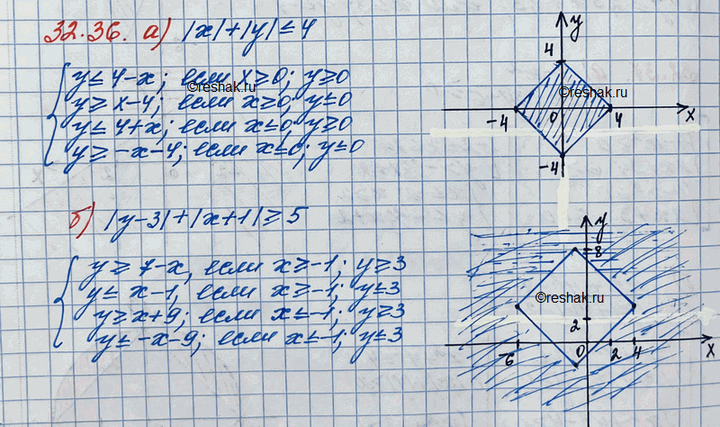 32.36. а) |x|+|y|≤4
y≤4-x; если x≥0; y≥0
y≥x-4; если x≥0; y≤0
y≤4+x; если x≤0; y≥0
y≥-x-4; если x≤0; y≤0
©reshak.ru
y
4
©reshak.ru
-4
0
4
x
-4
б) |y-3|+|x+1|≥5
y≥7-x, если x≥-1; y≥3
y≤x-1, если x≥-1; y≤3
y≥x+9; если x≤-1; y≥3
y≤-x-9; если x≤-1; y≤3
y
8
©reshak.ru
2
-6
0
2
4
x